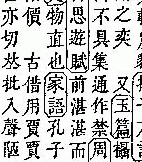 之奕　又玉篇
不具集通作禁
思遊賦前湛湛而
物直也家語孔子
價　古借用賈賈
亦切茲批入聲陋